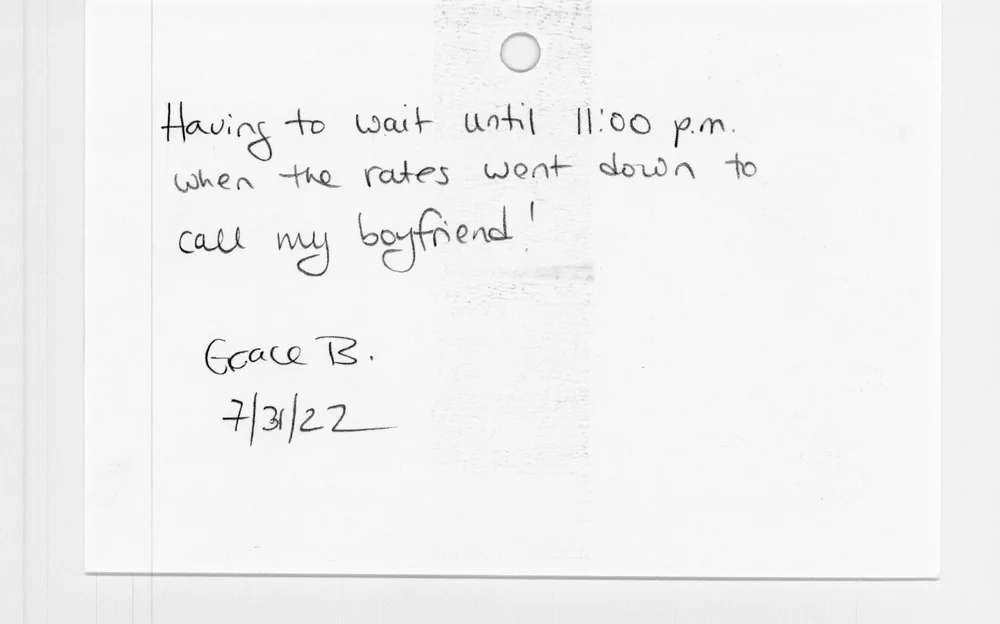 Having to wait until 11:00 p.m.
when the rates went down to
call my boyfriend!
Grace B.
7/31/22